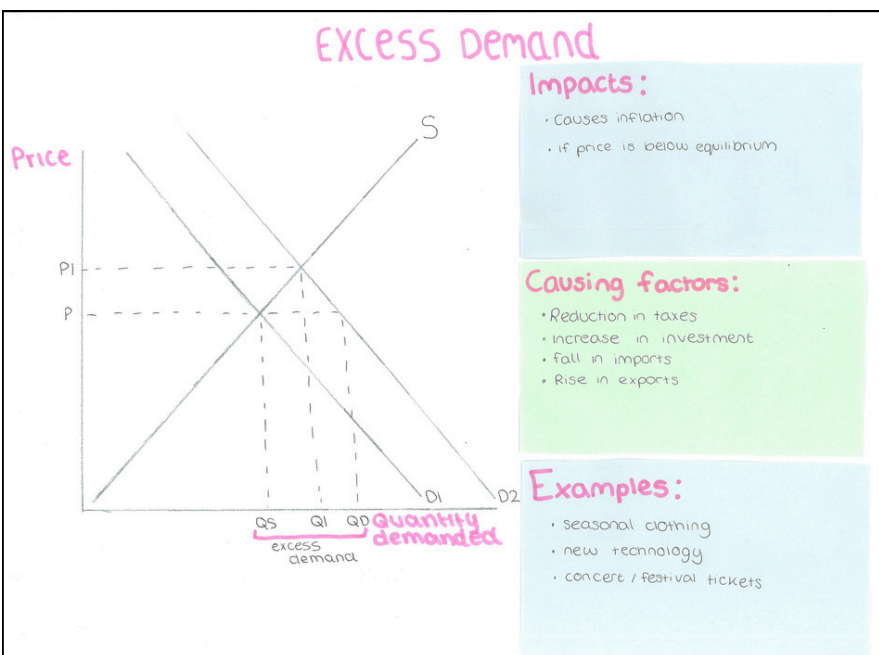 EXCESS DEMAND
Price
P1
P
S
D1
D2
QS Q1 QD
Quantity
demanded
excess
demand
Impacts:
· Causes inflation
· If price is below equilibrium
Causing factors:
· Reduction in taxes
· increase in investment
· fall in imports
· Rise in exports
Examples:
· seasonal clothing
· new technology
· concert / festival tickets